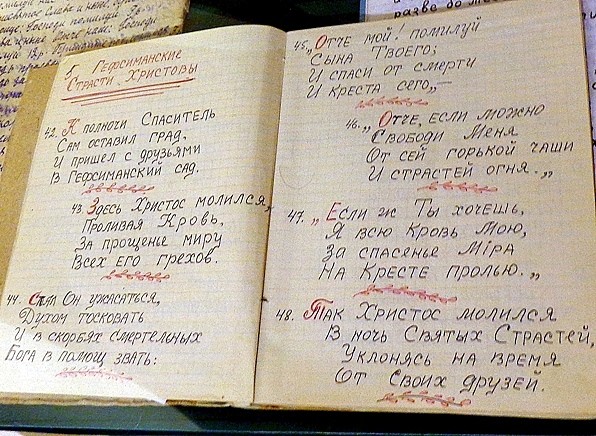 5. Гефсиманские
Страсти Христовы
42. К полночи Спаситель
Сам оставил град,
И пришел с друзьями
В Гефсиманский сад.
43. Здесь Христос молился,
Проливая Кровь,
За прощенье миру
Всех его грехов.
44. Стал Он ужасаться,
Духом тосковать
И в скорбях смертельных
Бога в помощ звать:
45. „Отче мой! помилуй
Сына Твоего;
И спаси от смерти
И Креста сего,–
46. „Отче, если можно
Свободи Меня
От сей горькой чаши
И страстей огня.„
47. „Если ж Ты хочешь,
Я всю Кровь Мою,
За спасенье Мiра
На Кресте пролью.„
48. Так Христос молился
В ночь Святых Страстей,
Уклонясь на время
От Своих друзей.